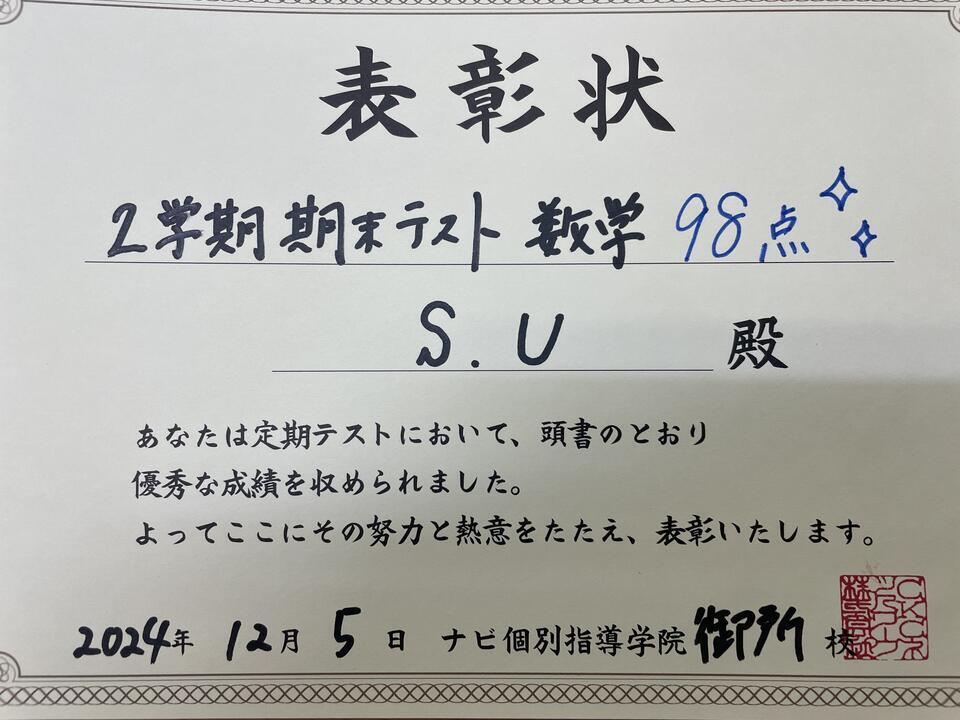 表彰状
2学期 期末テスト 数学 98点
S.U 殿
あなたは定期テストにおいて、頭書のとおり
優秀な成績を収められました。
よってここにその努力と熱意をたたえ、表彰いたします。
2024年 12月 5日 ナビ個別指導学院 御所 校